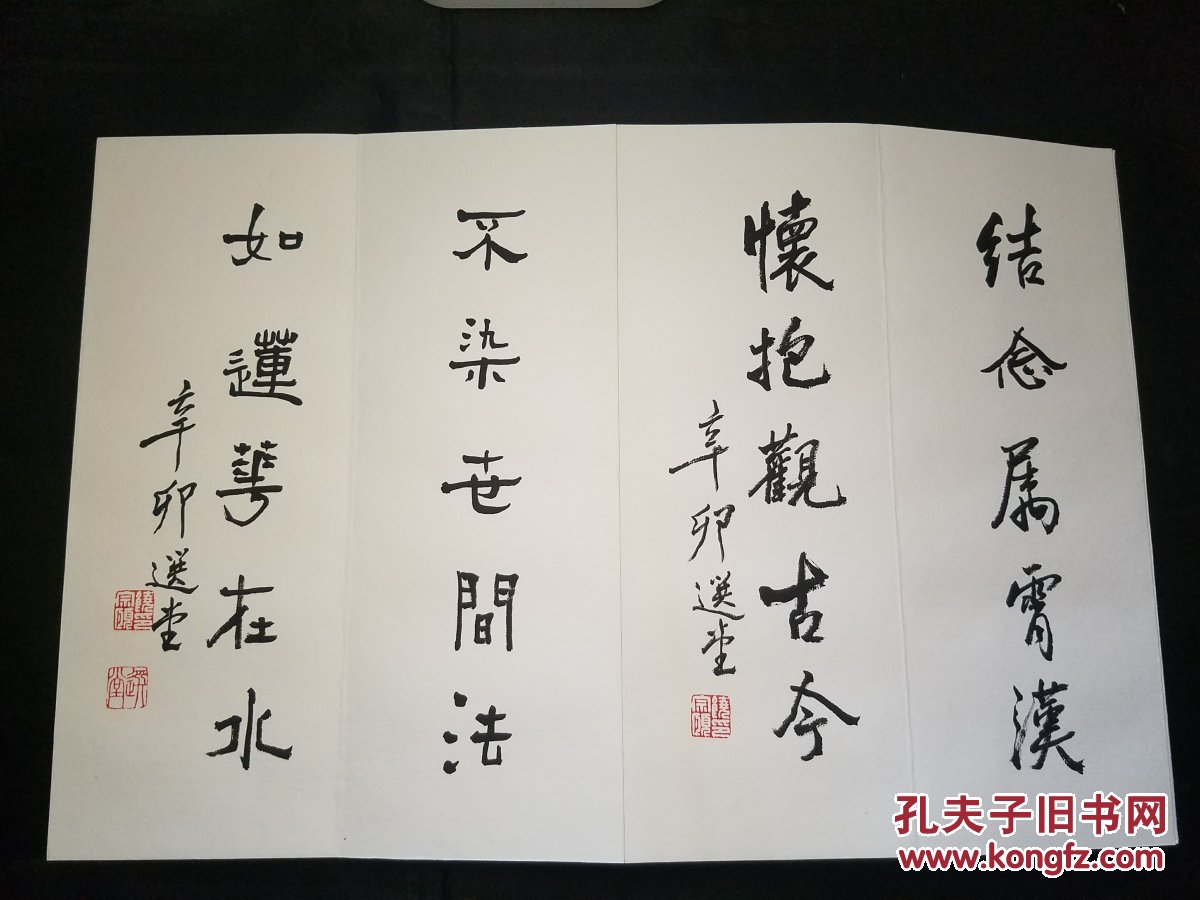 结念属霄漢
懷抱觀古今
辛卯選堂
饒宗頤印
不染世間法
如蓮華在水
辛卯選堂
饒宗頤印
選堂
孔夫子旧书网
www.kongfz.com